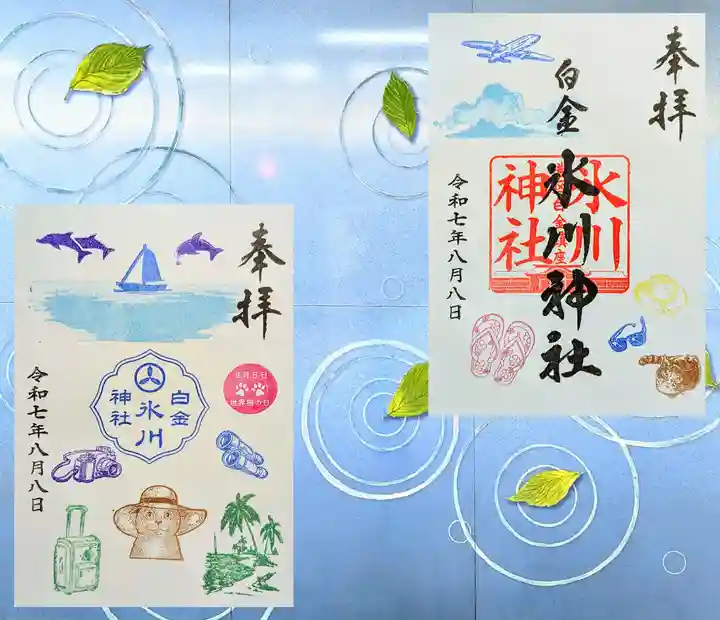 奉拝
白金
氷川神社
氷川
神社
白金鎮座
令和七年八月八日
奉拝
白金
氷川
神社
8月8日
世界猫の日
令和七年八月八日